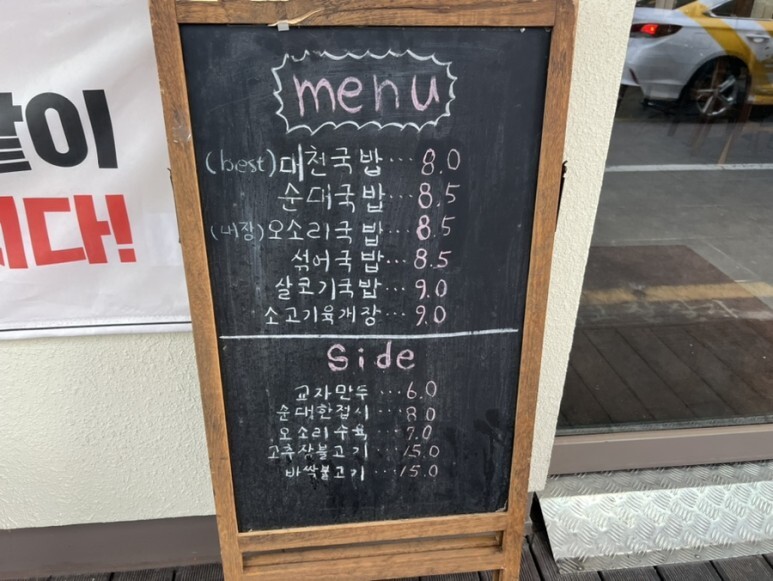 같이
니다!
menu
(best) 대천국밥 ... 8.0
순대국밥 ... 8.5
(내장) 오소리국밥 ... 8.5
섞어국밥 ... 8.5
살코기국밥 ... 9.0
소고기육개장 ... 9.0
Side
교자만두 ... 6.0
순대한접시 ... 8.0
오소리수육 ... 7.0
고추장불고기 ... 15.0
바싹불고기 ... 15.0